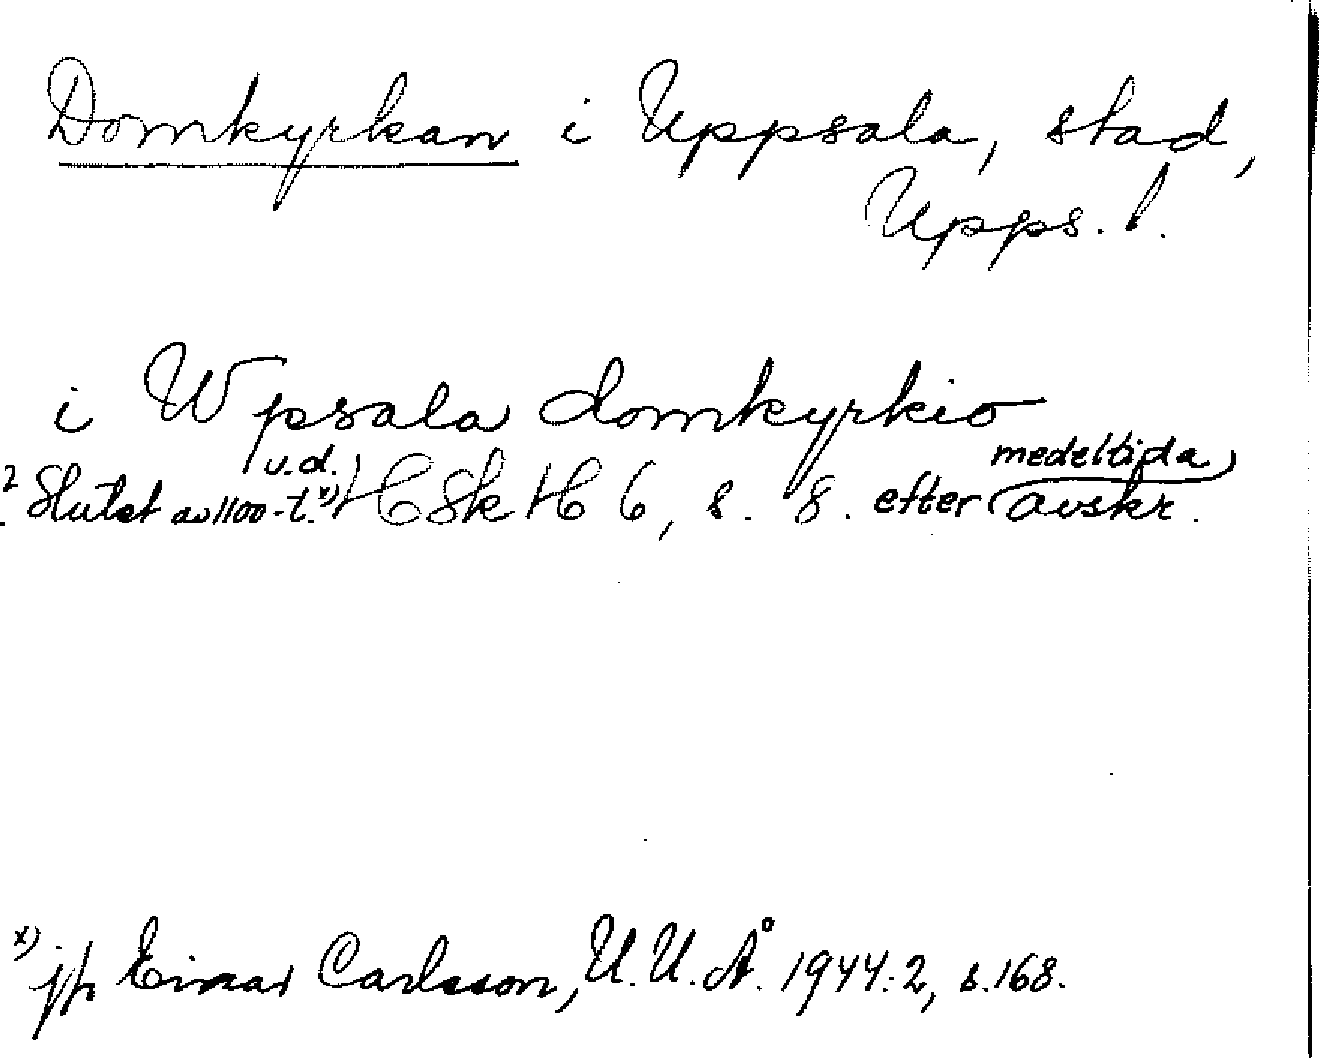 Domkyrkan i Uppsala, stad,
Upps. l.
i Wpsala domkyrkio
u.d. medeltida
? Slutet av 1100-t. x) HSkH 6, s. 8. efter avskr.
x) jfr Einar Carlsson, U.U.Å 1944:2, s.168.